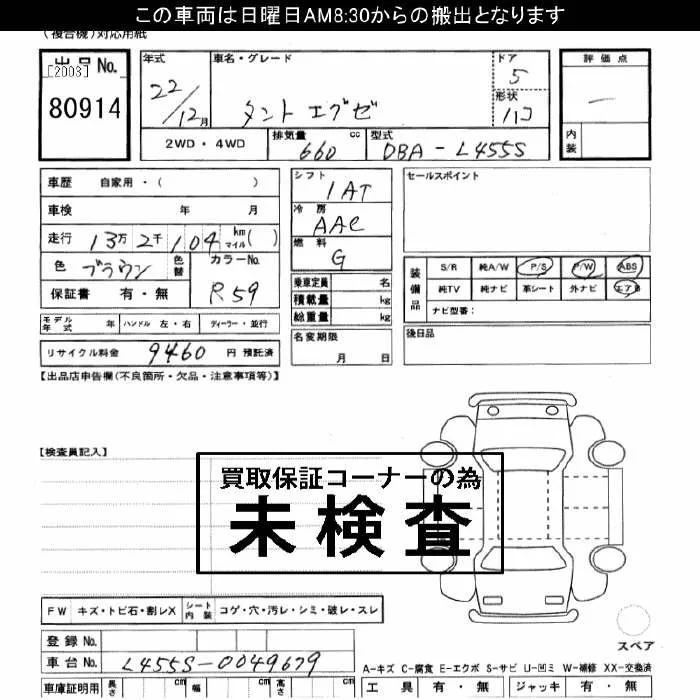 この車両は日曜日AM8:30からの搬出となります
(複合機)対応用紙
出品No.
[2003]
80914
年式
22/12月
車名・グレード
タント エグゼ
ドア
5
形状
ハコ
評価点
―
内装
2WD・4WD
排気量 660 cc
型式 DBA-L455S
車歴 自家用・( )
車検 年 月
走行 13万2千104 km マイル( )
色 ブラウン 色替
カラーNo. R59
保証書 有・無
シフト 1AT
冷房 AAC
燃料 G
乗車定員 名
積載量 kg
総重量 kg
セールスポイント
装備品
S/R 純A/W P/S P/W ABS
純TV 純ナビ 革シート 外ナビ エアB
ナビ型番:
モデル年式 年 ハンドル 左・右 ディーラー・並行
名変期限 月 日
後日品
リサイクル料金 9460 円 預託済
【出品店申告欄(不良箇所・欠品・注意事項等)】
【検査員記入】
買取保証コーナーの為
未検査
FW キズ・トビ石・割レX シート内装 コゲ・穴・汚レ・シミ・破レ・スレ
登録No.
車台No. L455S-0049679
スペア
A-キズ C-腐食 E-エクボ S-サビ U-凹ミ W-補修 XX-交換済
車庫証明用 長さ cm 幅 cm 高さ cm
工具 有・無 ジャッキ 有・無